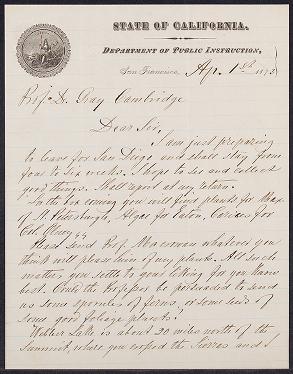 STATE OF CALIFORNIA.
DEPARTMENT OF PUBLIC INSTRUCTION,
San Francisco, Ap. 1st 1875
Prof. Gray Cambridge
Dear Sir,
I am just preparing
to leave for San Diego and shall stay from
four to six weeks. I hope to see and collect
good things. Shall report at my return.
In the box coming you will find plants for Max.
of St Petersburgh, Algae for Eaton, Carices for
Col.
Please send Prof. whatever you
think will please him of my plants. All such
matters you settle to your liking for you know
best. Could the Professor be persuaded to send
us some sporules of ferns, or some seeds of
some good foliage plants?
Webber Lake is about 20 miles north of the
Summit, where you crossed the Sierras and I